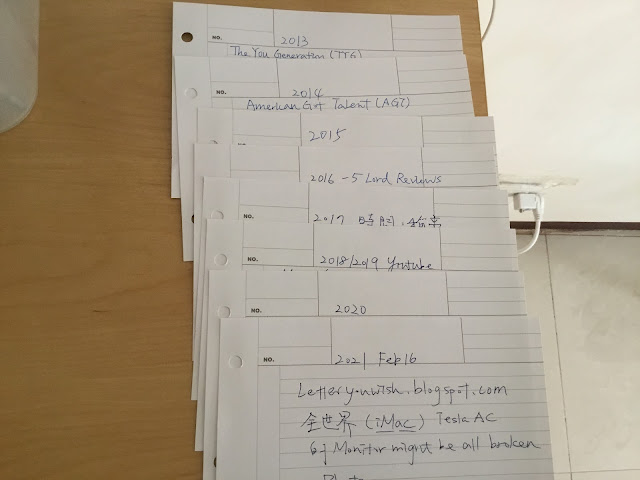 NO.
2013
The You Generation (TYG)
NO.
2014
American Got Talent (AGT)
2015
2016 - 5 Lord Reviews
NO.
2017 時間、
NO.
2018/2019 Youtube
NO.
2020
NO.
2021 Feb 16
Lettery.uwish.blogspot.com
全世界 (iMac) Tesla AC
Monitor might be all broken